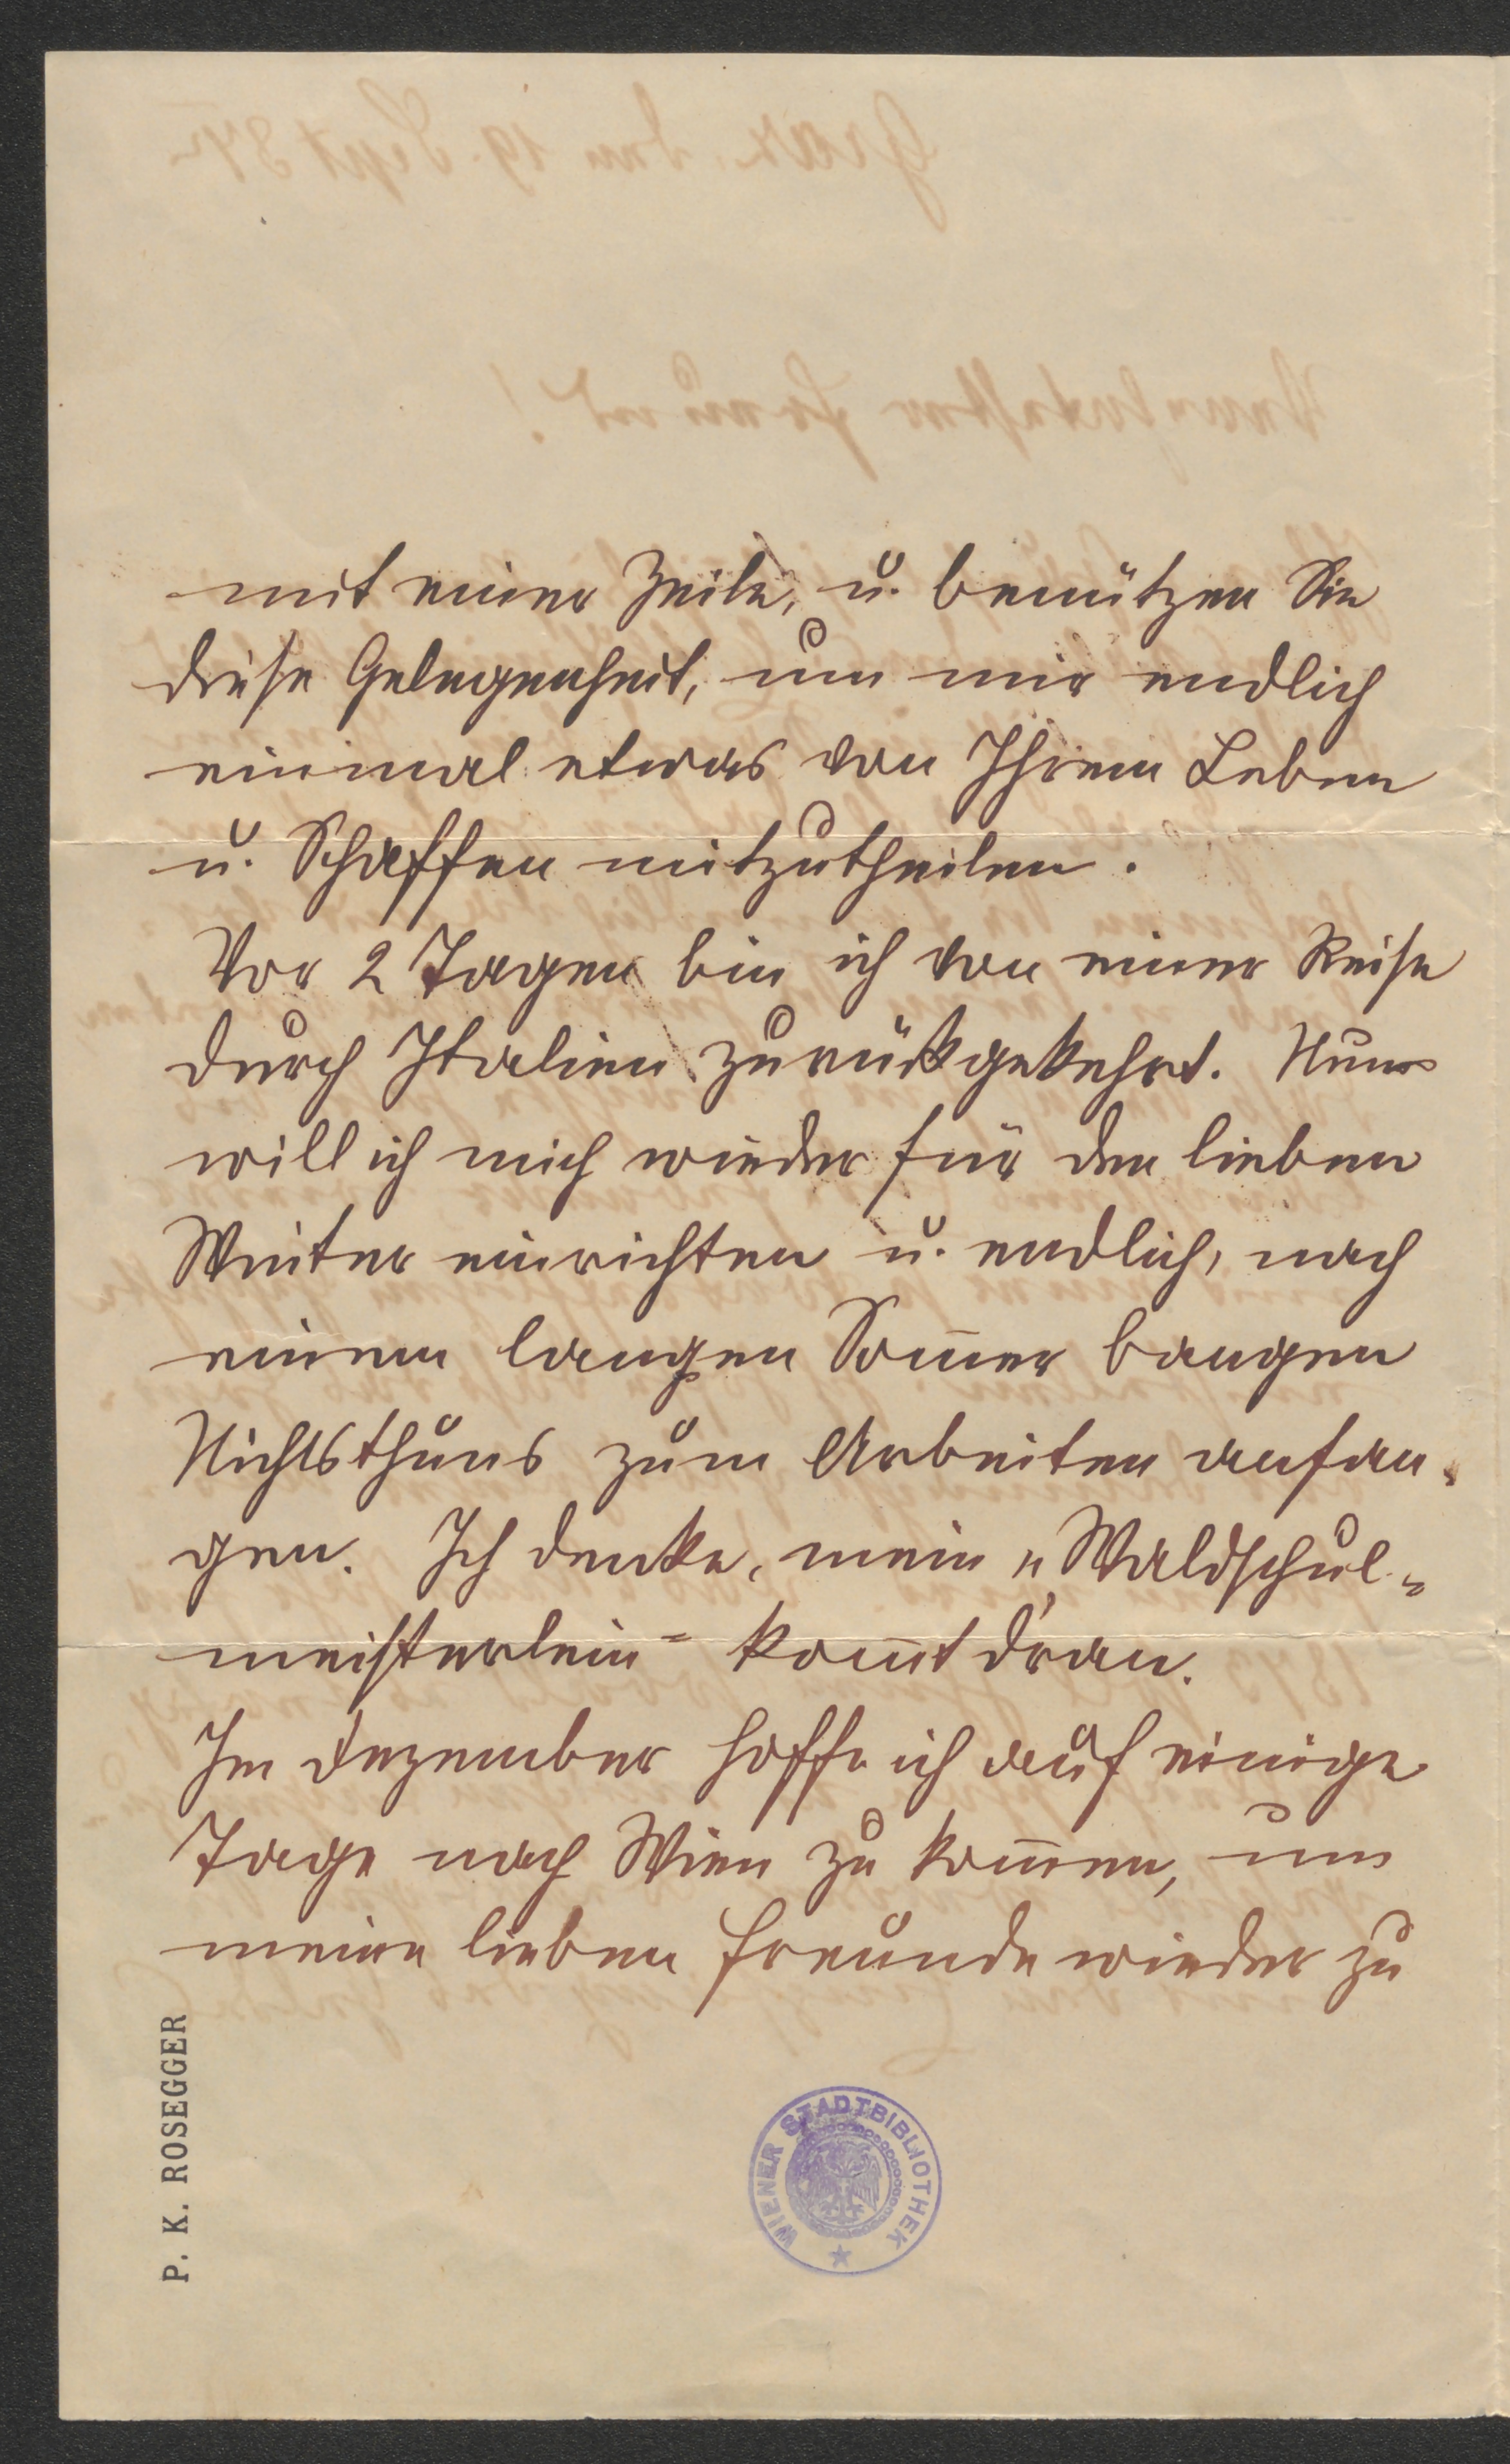 mit einer Zeile, u. benützen Sie
diese Gelegenheit, um mir endlich
einmal etwas von Ihrem Leben
u. Schaffen mitzutheilen.
Vor 2 Tagen bin ich von einer Reise
durch Italien zurückgekehrt. Nun
will ich mich wieder für den lieben
Winter einrichten u. endlich, nach
einem langen Som̅er bangen
Nichtsthuns zum Arbeiten anfan-
gen. Ich denke, mein „Waldschul-
meisterlein“ kom̅t d'ran.
Im Dezember hoffe ich auf einige
Tage nach Wien zu kom̅en, um
meine lieben Freunde wieder zu
P. K. ROSEGGER
WIENER STADTBIBLIOTHEK